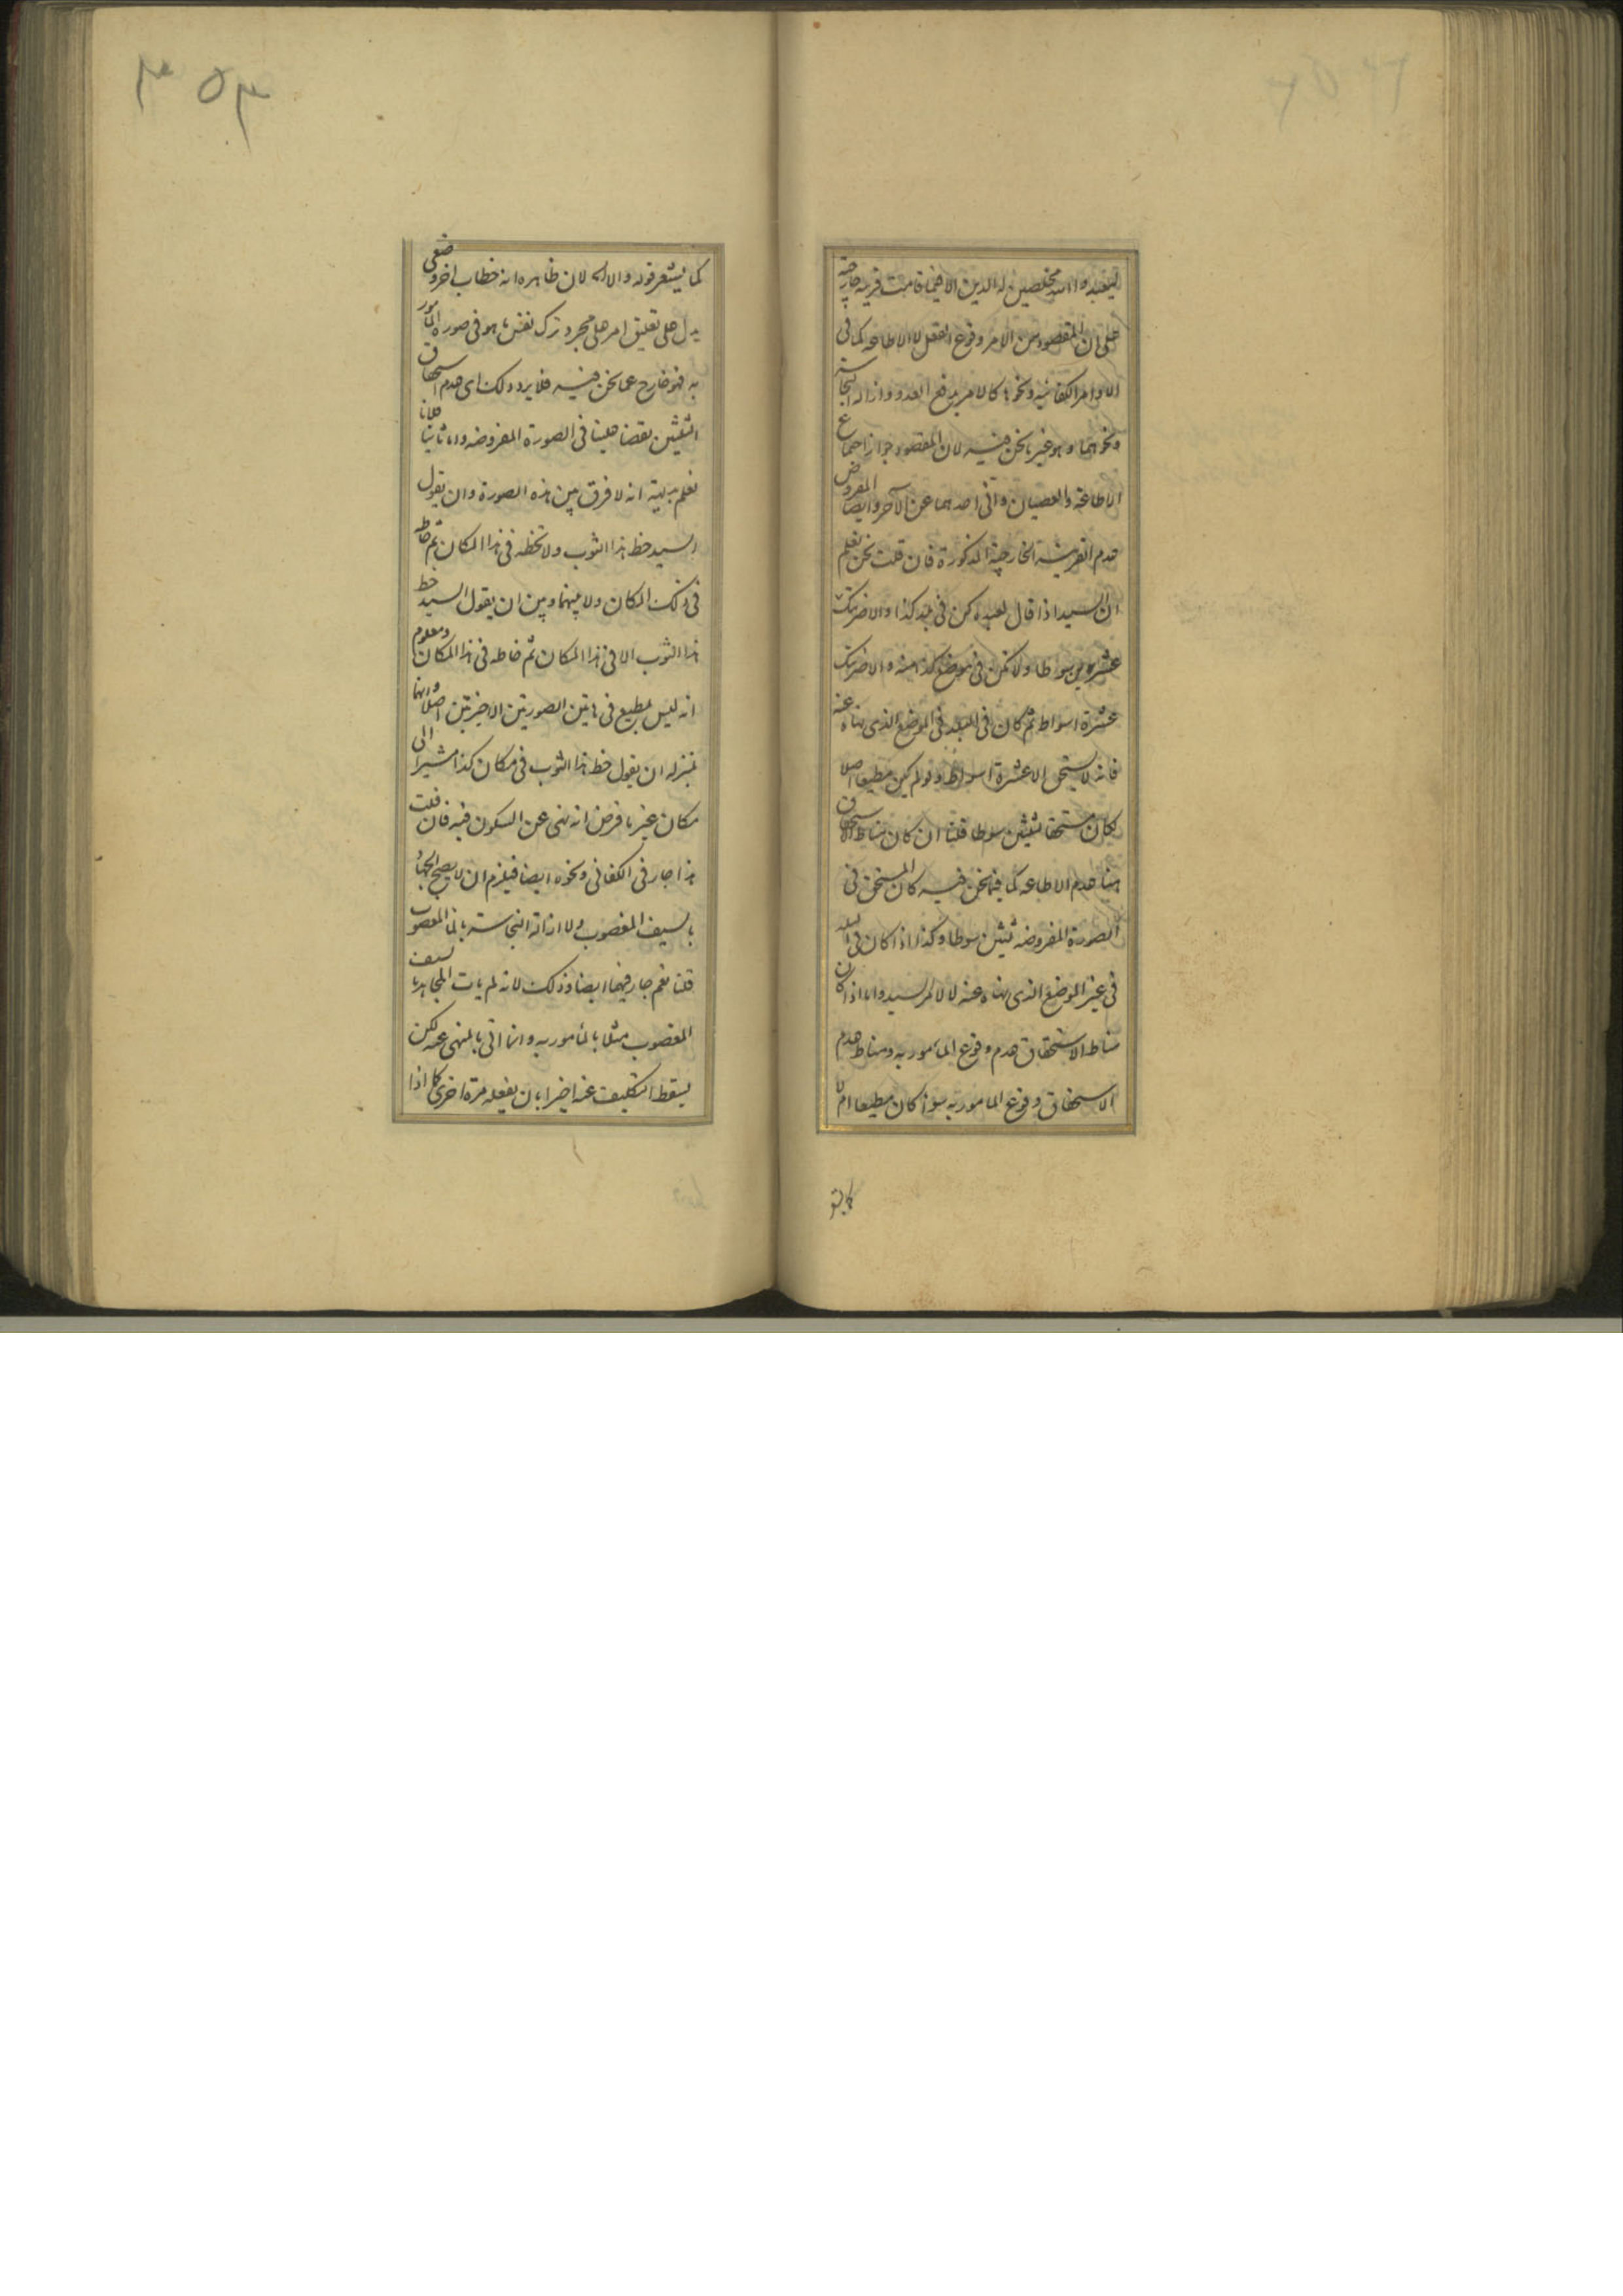 ليعبدوا الله مخلصين له الدين الا فيما قامت قرينة خارجية
على ان المقصود من الامر وقوع الفعل لا الاطاعه كما فى
الاوامر الكفائيه ونحوها كالامر بدفع العدو وازاله النجاسة
ونحوهما وهو غير ما نحن فيه لان المقصود جواز اجتماع
الاطاعة والعصيان وانى احدهما عن الآخر وايضا المفروض
عدم القرينة الخارجية المذكورة فان قلت نحن نعلم
ان السيد اذا قال لعبده كن فى بلد كذا والا ضربتك
عشرين سواطا ولا تكن فى موضع كذا منه والا ضربتك
عشرة اسواط ثم كان فى البلد فى الموضع الذى نهاه عنه
فانه لا يستحق الا عشرة اسواط ولو لم يكن مطيعا اصلا
لكان مستحقا ثلثين سوطا قلنا ان كان مناط الاستحقاق
هنا عدم الاطاعه كما فيما نحن فيه كان المستحق فى
الصورة المفروضه ثلثين سوطا وكذا اذا كان فى البلد
فى غير الموضع الذى نهاه عنه لا لامر السيد واما اذا كان
مناط الاستحقاق عدم وقوع المأمور به ومناط عدم
الاستحقاق وقوع المامور به سواء كان مطيعا ام لا
كما يشعر
٣٥٣
كما يشعر قوله والا له لان ظاهره انه خطاب اخر وضعى
يدل على تعليق امر على مجرد ترك نفس ما هو فى صورة المأمور
به فهو خارج عما نحن فيه فلا يرد ذلك اى عدم استحقاق
الثلثين نقضا علينا فى الصورة المفروضه واما ثانيا فلانا
نعلم بديهة انه لا فرق بين هذه الصورة وان يقول
السيد خط هذا الثوب ولا تخطه فى هذا المكان ثم خاطه
فى ذلك المكان ولا بينهما وبين ان يقول السيد خط
هذا الثوب الا فى هذا المكان ثم خاطه فى هذا المكان ومعلوم
انه ليس بمطيع فى هاتين الصورتين الاخيرتين اصلا وانهما
بمنزله ان يقول خط هذا الثوب فى مكان كذا مشيرا الى
مكان غير ما فرض انه نهى عن السكون فيه فان قلت
هذا جار فى الكفائى ونحوه ايضا فيلزم ان لا يصح الجهاد
بالسيف المغصوب ولا ازالة النجاسته بالماء المغصوب
قلنا نعم جار فيهما ايضا وذلك لانه لم يات المجاهد بالسيف
المغصوب مثلا بالمأمور به وانما اتى بالمنهى عنه لكن
يسقط التكليف عنه اخيرا بان يفعله مرة اخرى كما اذا